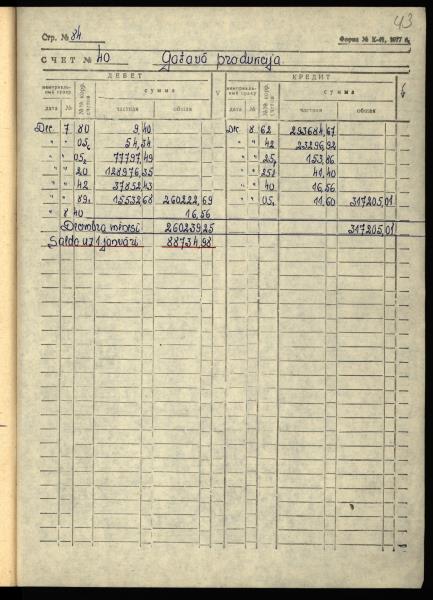 43
Стр. № 84
Форма № К-41, 1977 г.
СЧЕТ № 40 Gatavā produkcija
ДЕБЕТ КРЕДИТ
сумма сумма
дата № частная общая дата № частная общая
Dec. 7 80 9,40 Dec 8 62 293684,67
" " 05 54,34 " " 42 23296,92
" " 05 77797,49 " " 25 153,86
" " 20 128976,35 " " 25 41,40
" " 42 37852,43 " " 40 16,56
" " 89 15532,68 260222,69 " " 05 11,60 317205,01
" 8 40 16,56
Decembra mēnesī 260239,25 317205,01
Saldo uz 1 janvāri 88734,98